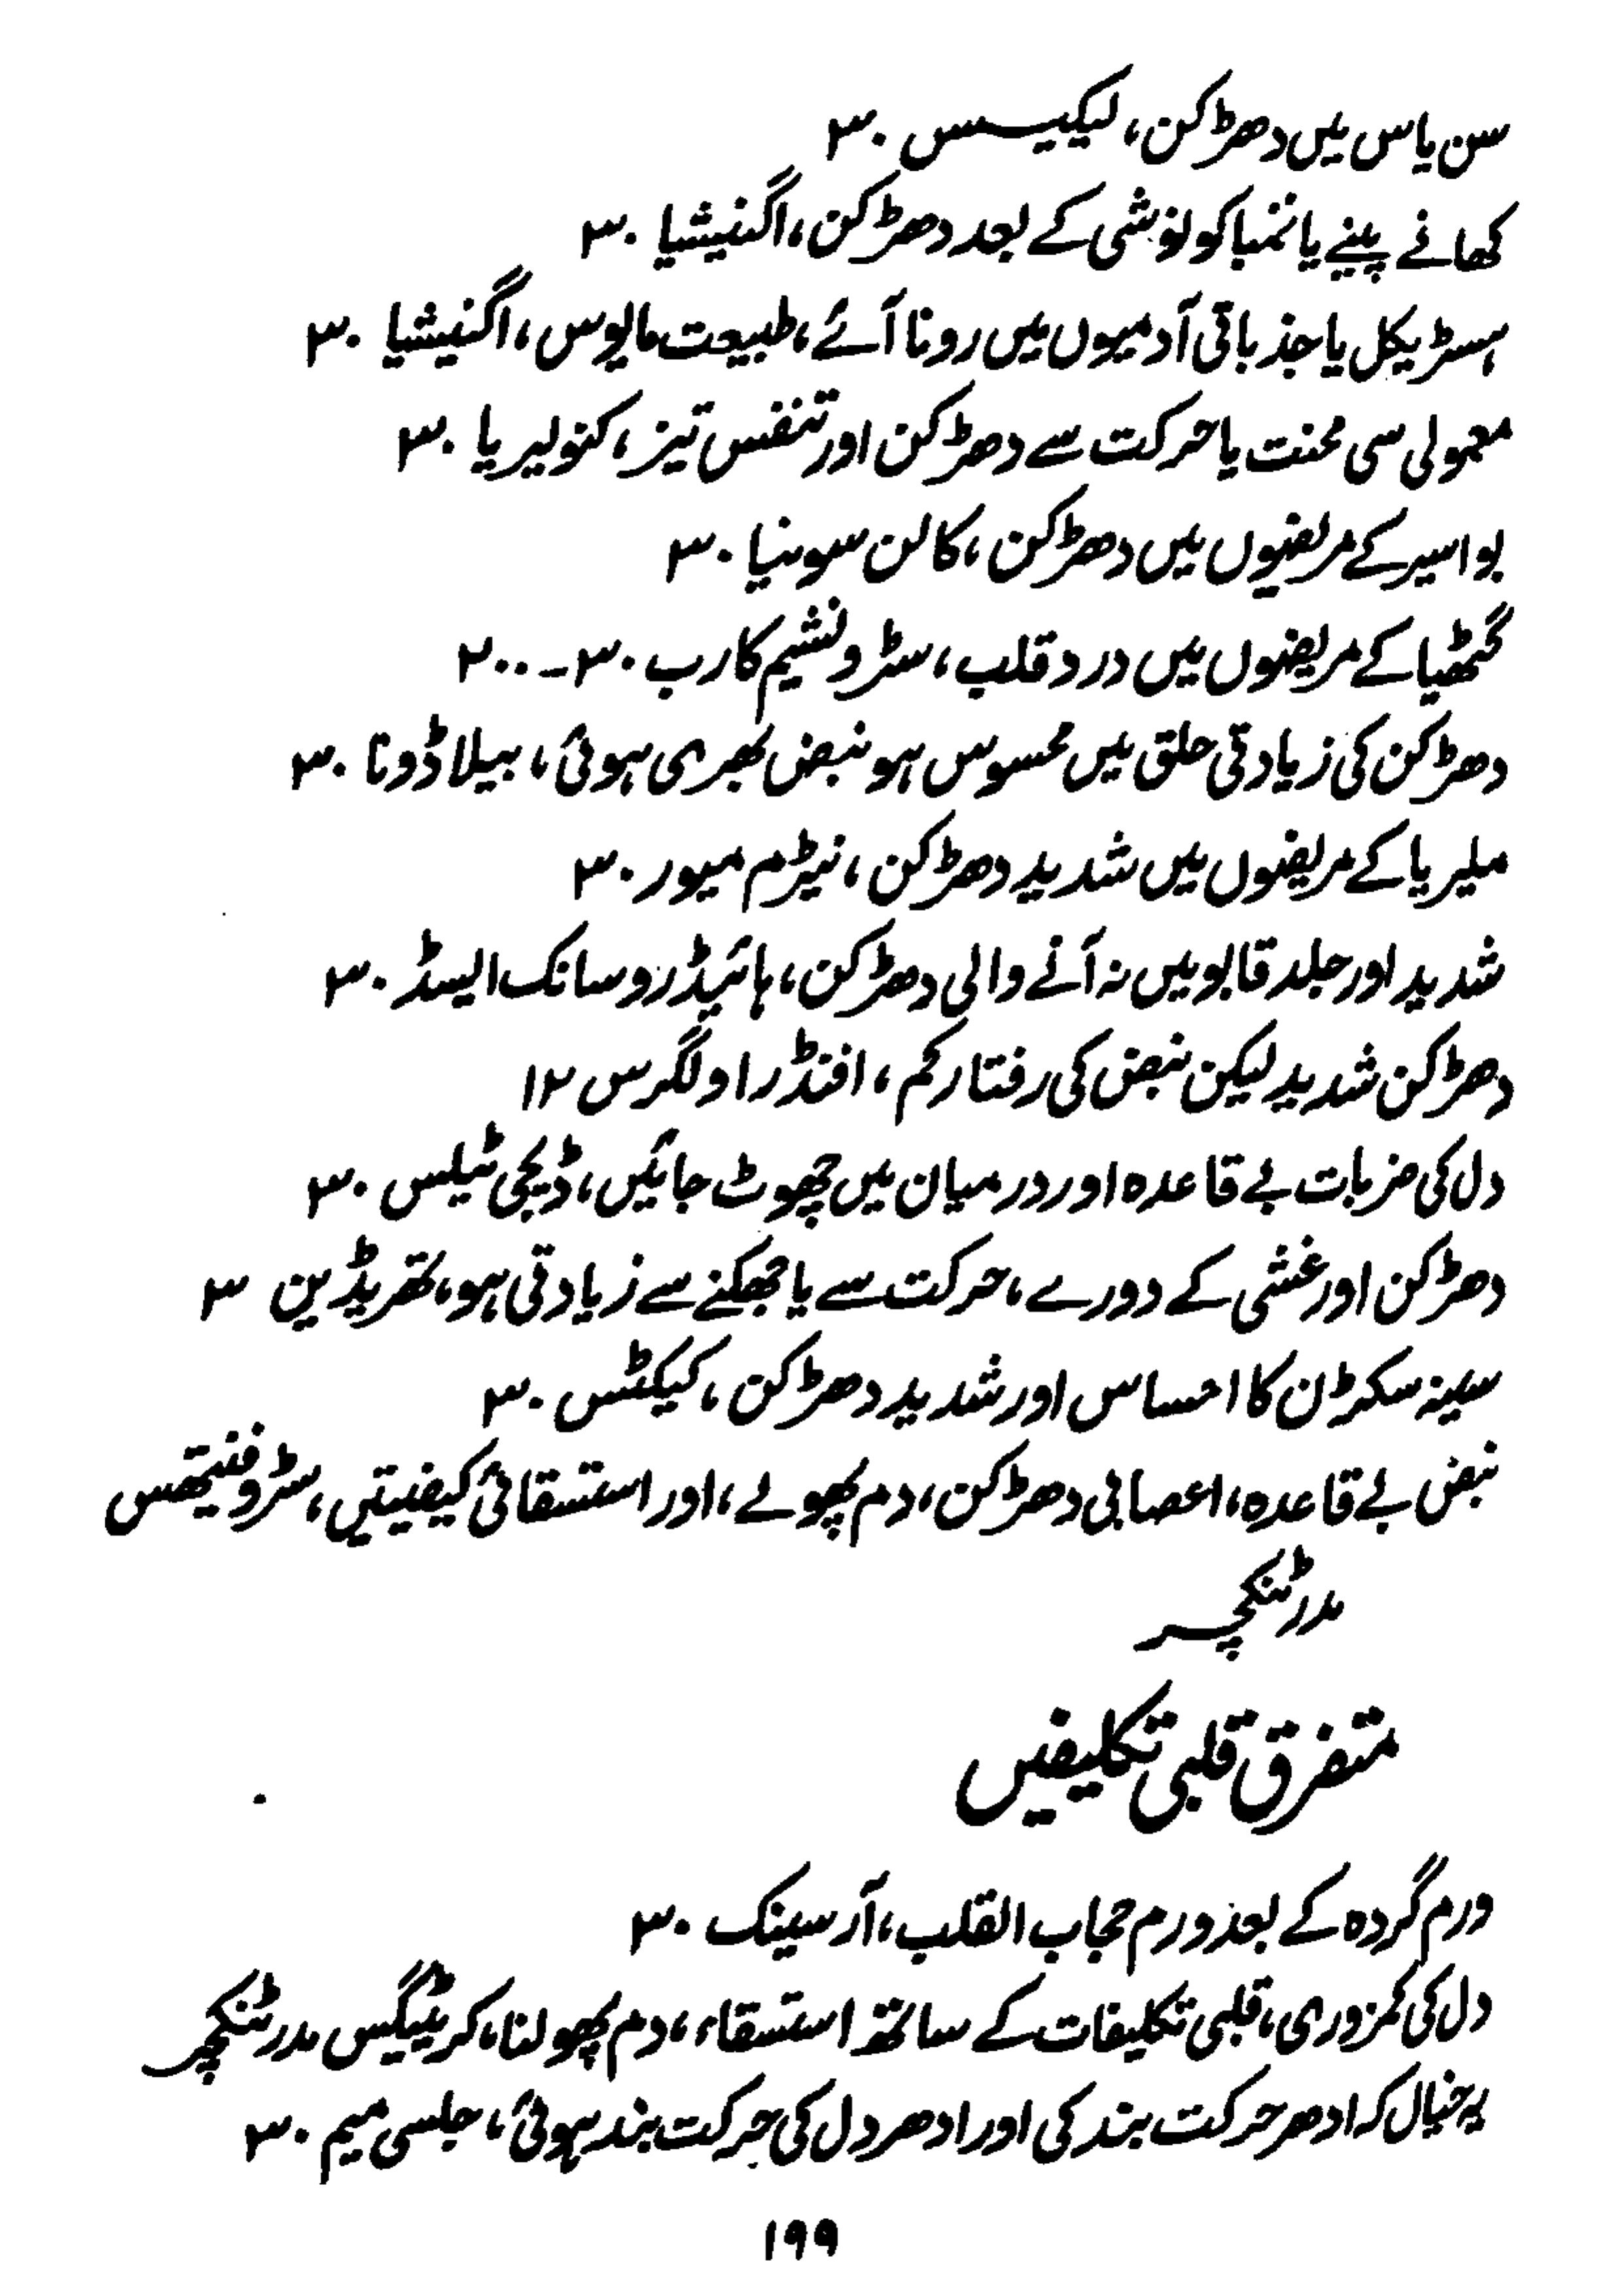 سن یاس میں دھڑکن، لیکیسس ۳۰
کھانے پینے یا تمباکو نوشی کے بعد دھڑکن، اگنیشیا ۳۰
ہسٹریکل یا جذباتی آدمیوں میں رونا آئے، طبیعت مایوس، اگنیشیا ۳۰
معمولی سی محنت یا حرکت سے دھڑکن اور تنفس تیز، کنولیریا ۳۰
بواسیر کے مریضوں میں دھڑکن، کالن سونیا ۳۰
گٹھیا کے مریضوں میں درد قلب، سٹرونشیم کارب ۳۰-۲۰۰
دھڑکن کی زیادتی حلق میں محسوس ہو نبض بھری ہوئی، بیلاڈونا ۳۰
ملیریا کے مریضوں میں شدید دھڑکن، نیٹرم میور ۳۰
شدید اور جلد قابو میں نہ آنے والی دھڑکن، ہائیڈروسانک ایسڈ ۳۰
دھڑکن شدید لیکن نبض کی رفتار کم، افنڈرا ولگرس ۱۲
دل کی ضربات بے قاعدہ اور درمیان میں چھوٹ جائیں، ڈیجی ٹیلس ۳۰
دھڑکن اور غشی کے دورے، حرکت سے یا جھکنے سے زیادتی ہو، تھریڈین ۳
سینہ سکڑن کا احساس اور شدید دھڑکن، کیکٹس ۳۰
نبض بے قاعدہ، اعصابی دھڑکن، دم پھولے، اور استسقائی کیفیتیں، سٹروفنیتھس
مدر ٹنکچر
متفرق قلبی تکلیفیں
ورم گردہ کے بعد ورم حجاب القلب، آرسینک ۳۰
دل کی کمزوری، قلبی تکلیفات کے ساتھ استسقاء، دم پھولنا، کریٹیگس مدر ٹنکچر
یہ خیال کہ ادھر حرکت بند کی اور ادھر دل کی حرکت بند ہوئی، جلسی میم ۳۰
۱۹۹